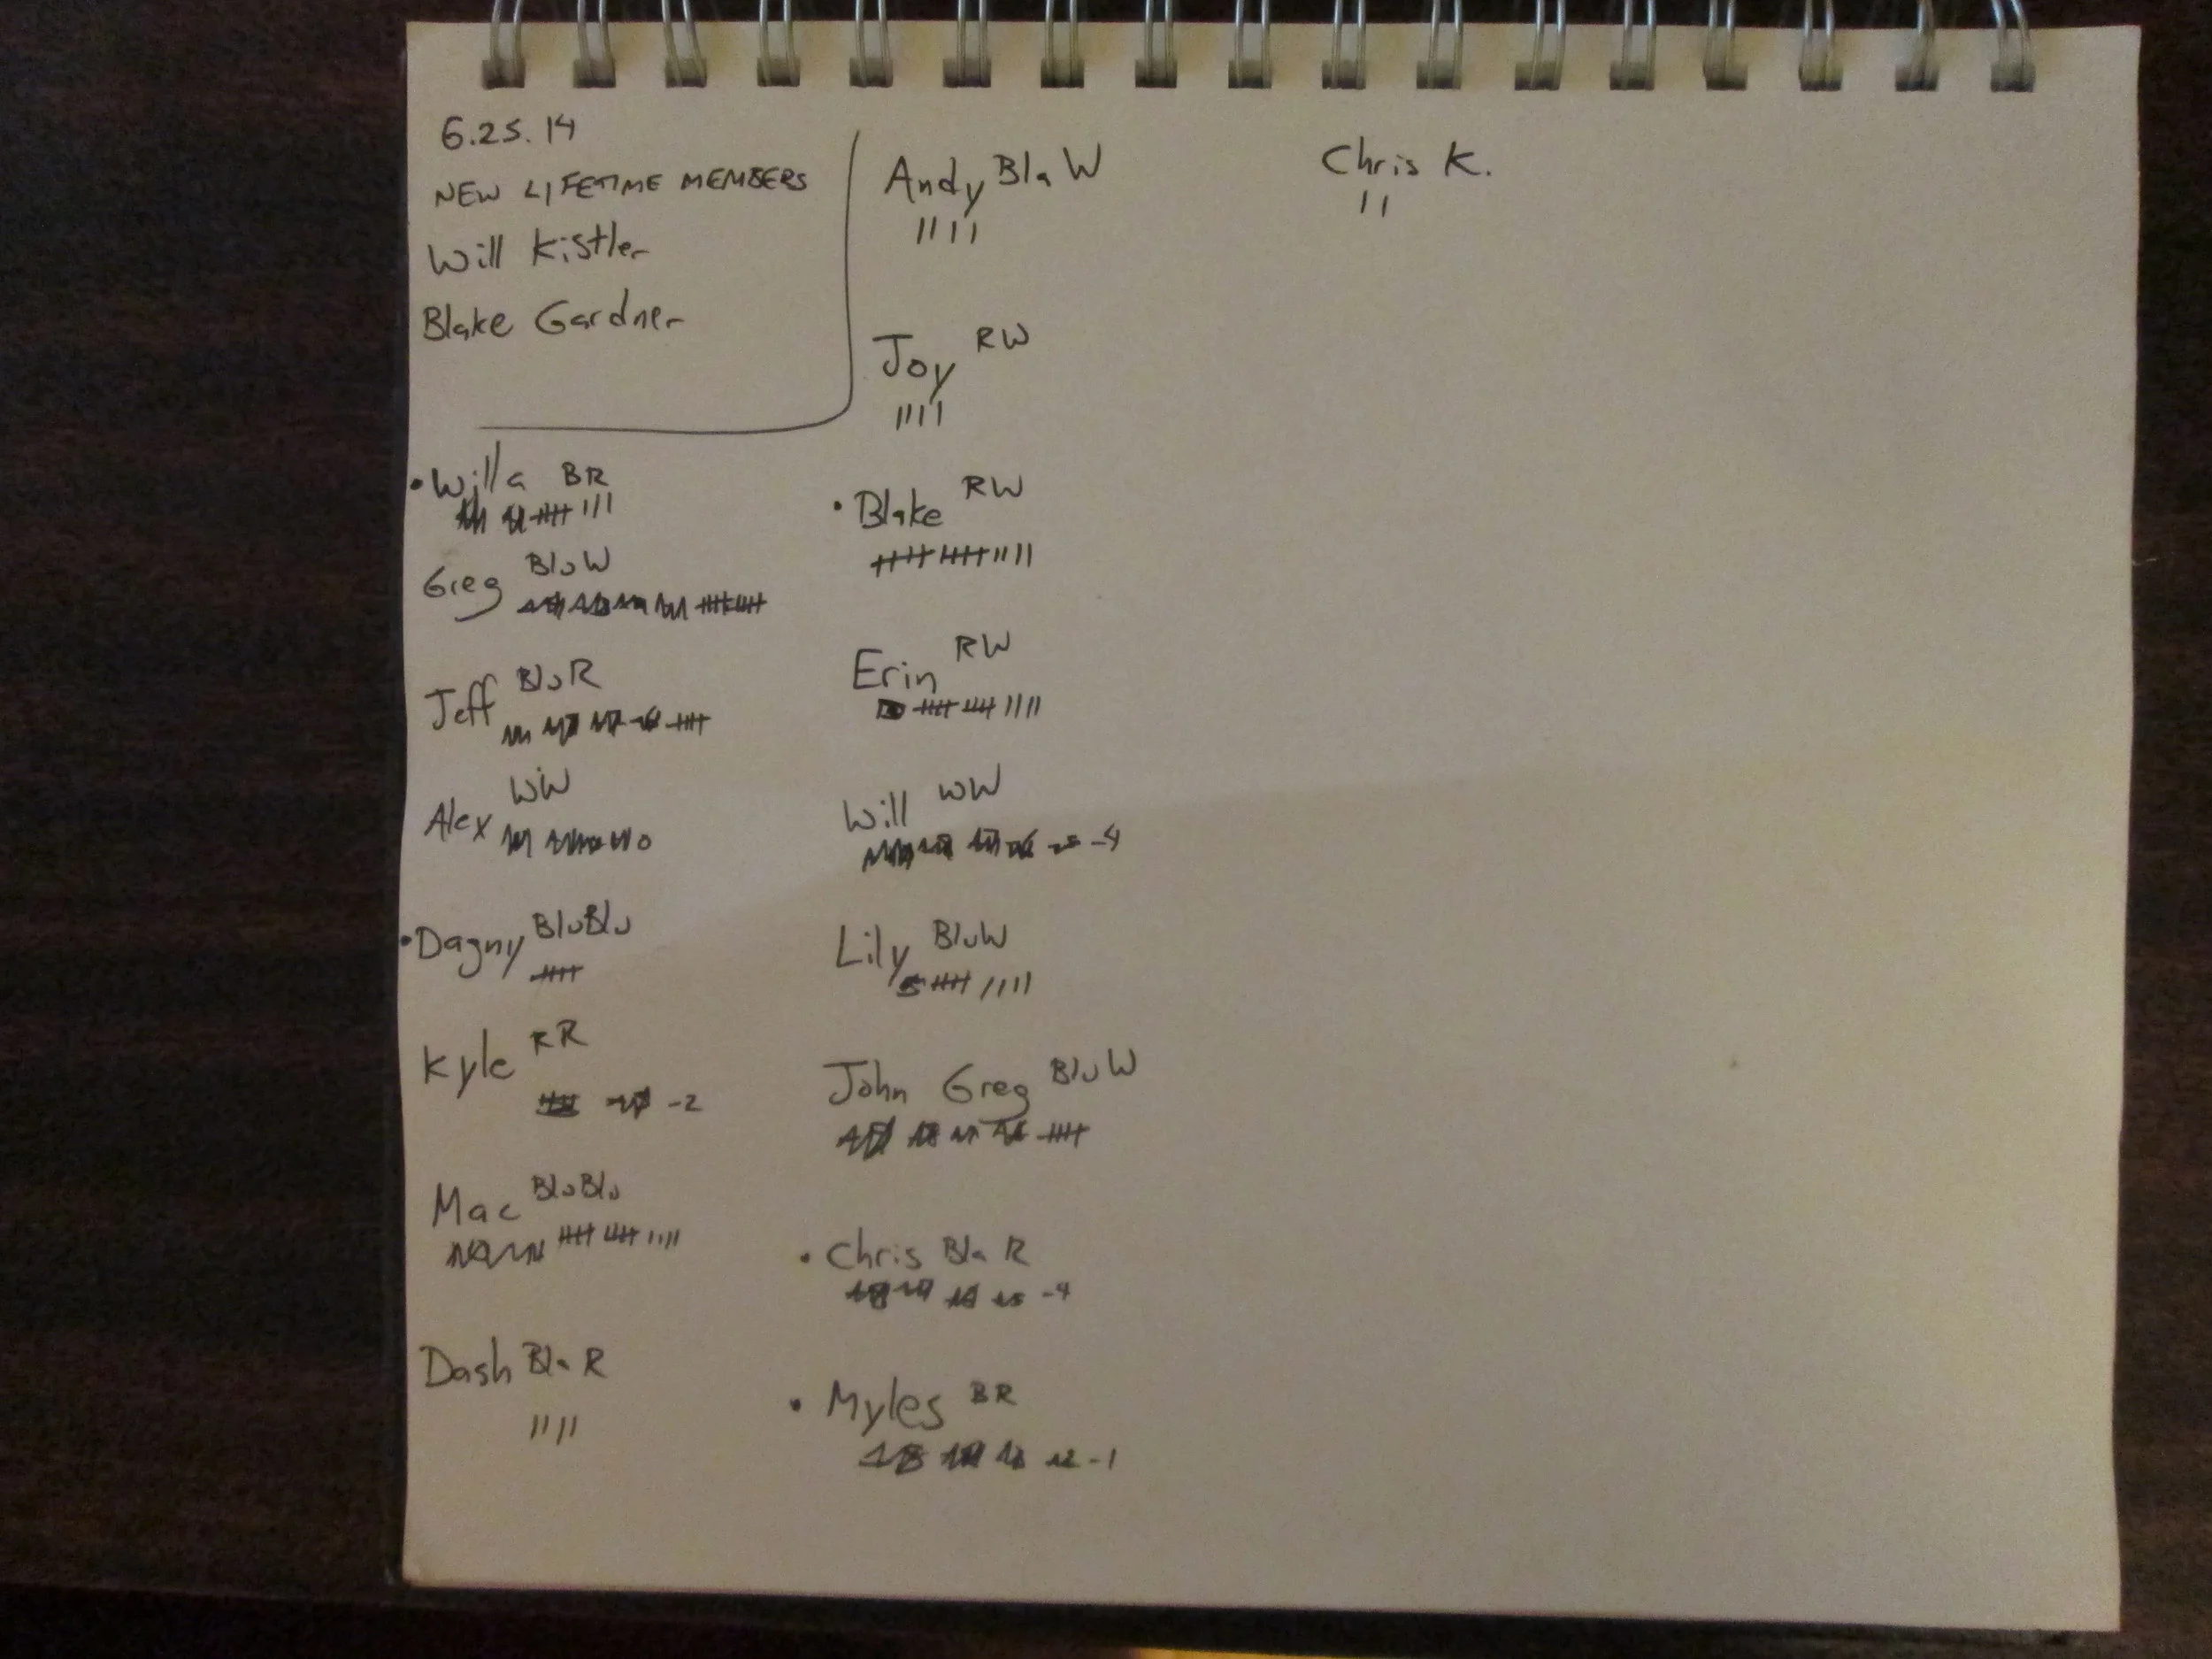 6.25.14
NEW LIFETIME MEMBERS
Will Kistler
Blake Gardner
• Willa BR
III
Greg BluW
Jeff BluR
Alex WW
0
• Dagny BluBlu
Kyle RR
-2
Mac BluBlu
IIII
Dash Bla R
IIII
Andy Bla W
IIII
Joy RW
IIII
• Blake RW
IIII
Erin RW
IIII
Will WW
-4
Lily BluW
IIII
John Greg BluW
• Chris Bla R
-4
• Myles BR
-1
Chris K.
II